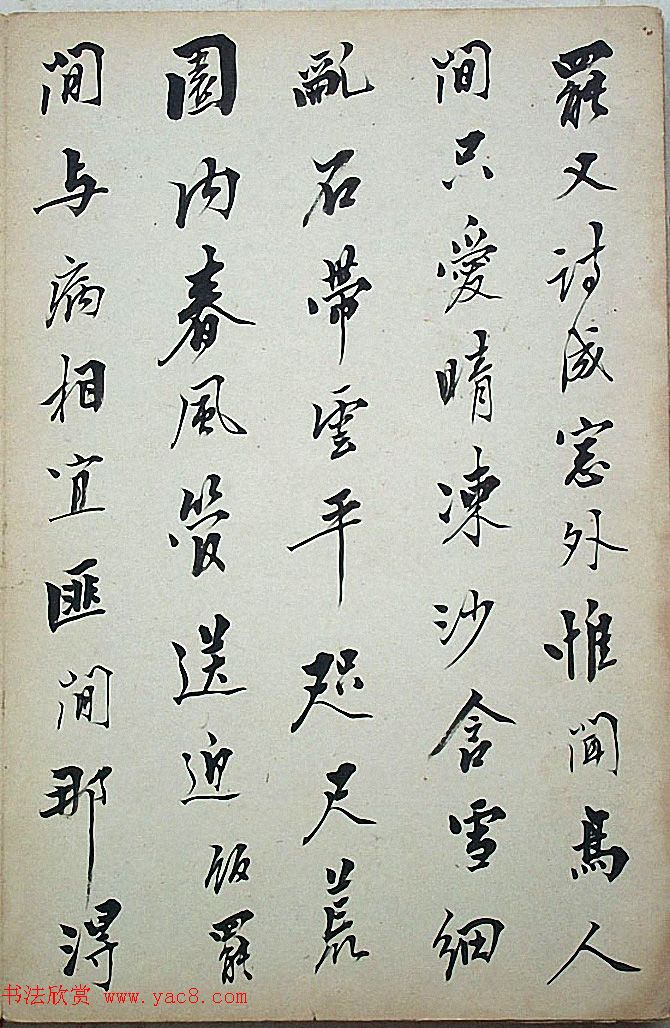 罷又詩成窓外惟聞鳥人
間只愛晴凍沙含雪細
亂石帶雲平咫尺荒
園内春風管送迎飯罷
閒与病相宜匪閒那得
书法欣赏 www.yac8.com